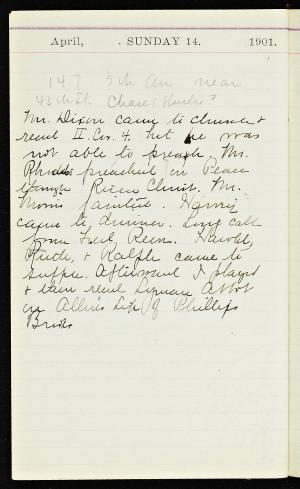 April, . SUNDAY 14. 1901.
147 5th Av. near
45th St. Charles
Mr. Dixon came to church &
read II. Cor. 4. but he was
not able to preach. Mr.
Rhoades preached on Peace
through Risen Christ. Mr.
Morris fainted. Harris
came to dinner. Long call
from Fred. Harold,
Ruth, & Ralph came to
supper. Afterward I played
& then read Lyman Abbot
on Allen's Life of Phillips
Brooks